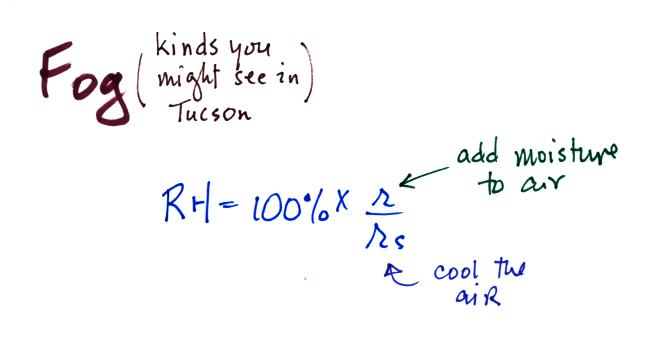 Fog (kinds you
might see in)
Tucson
add moisture
to air
RH = 100% x r/rs
cool the
air